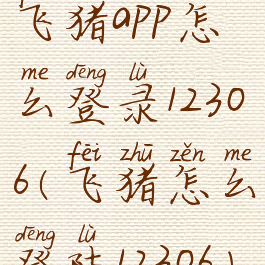 飞猪app怎
me dēng lù
么登录1230
fēi zhū zěn me
6(飞猪怎么
dēng lù
登陆12306)